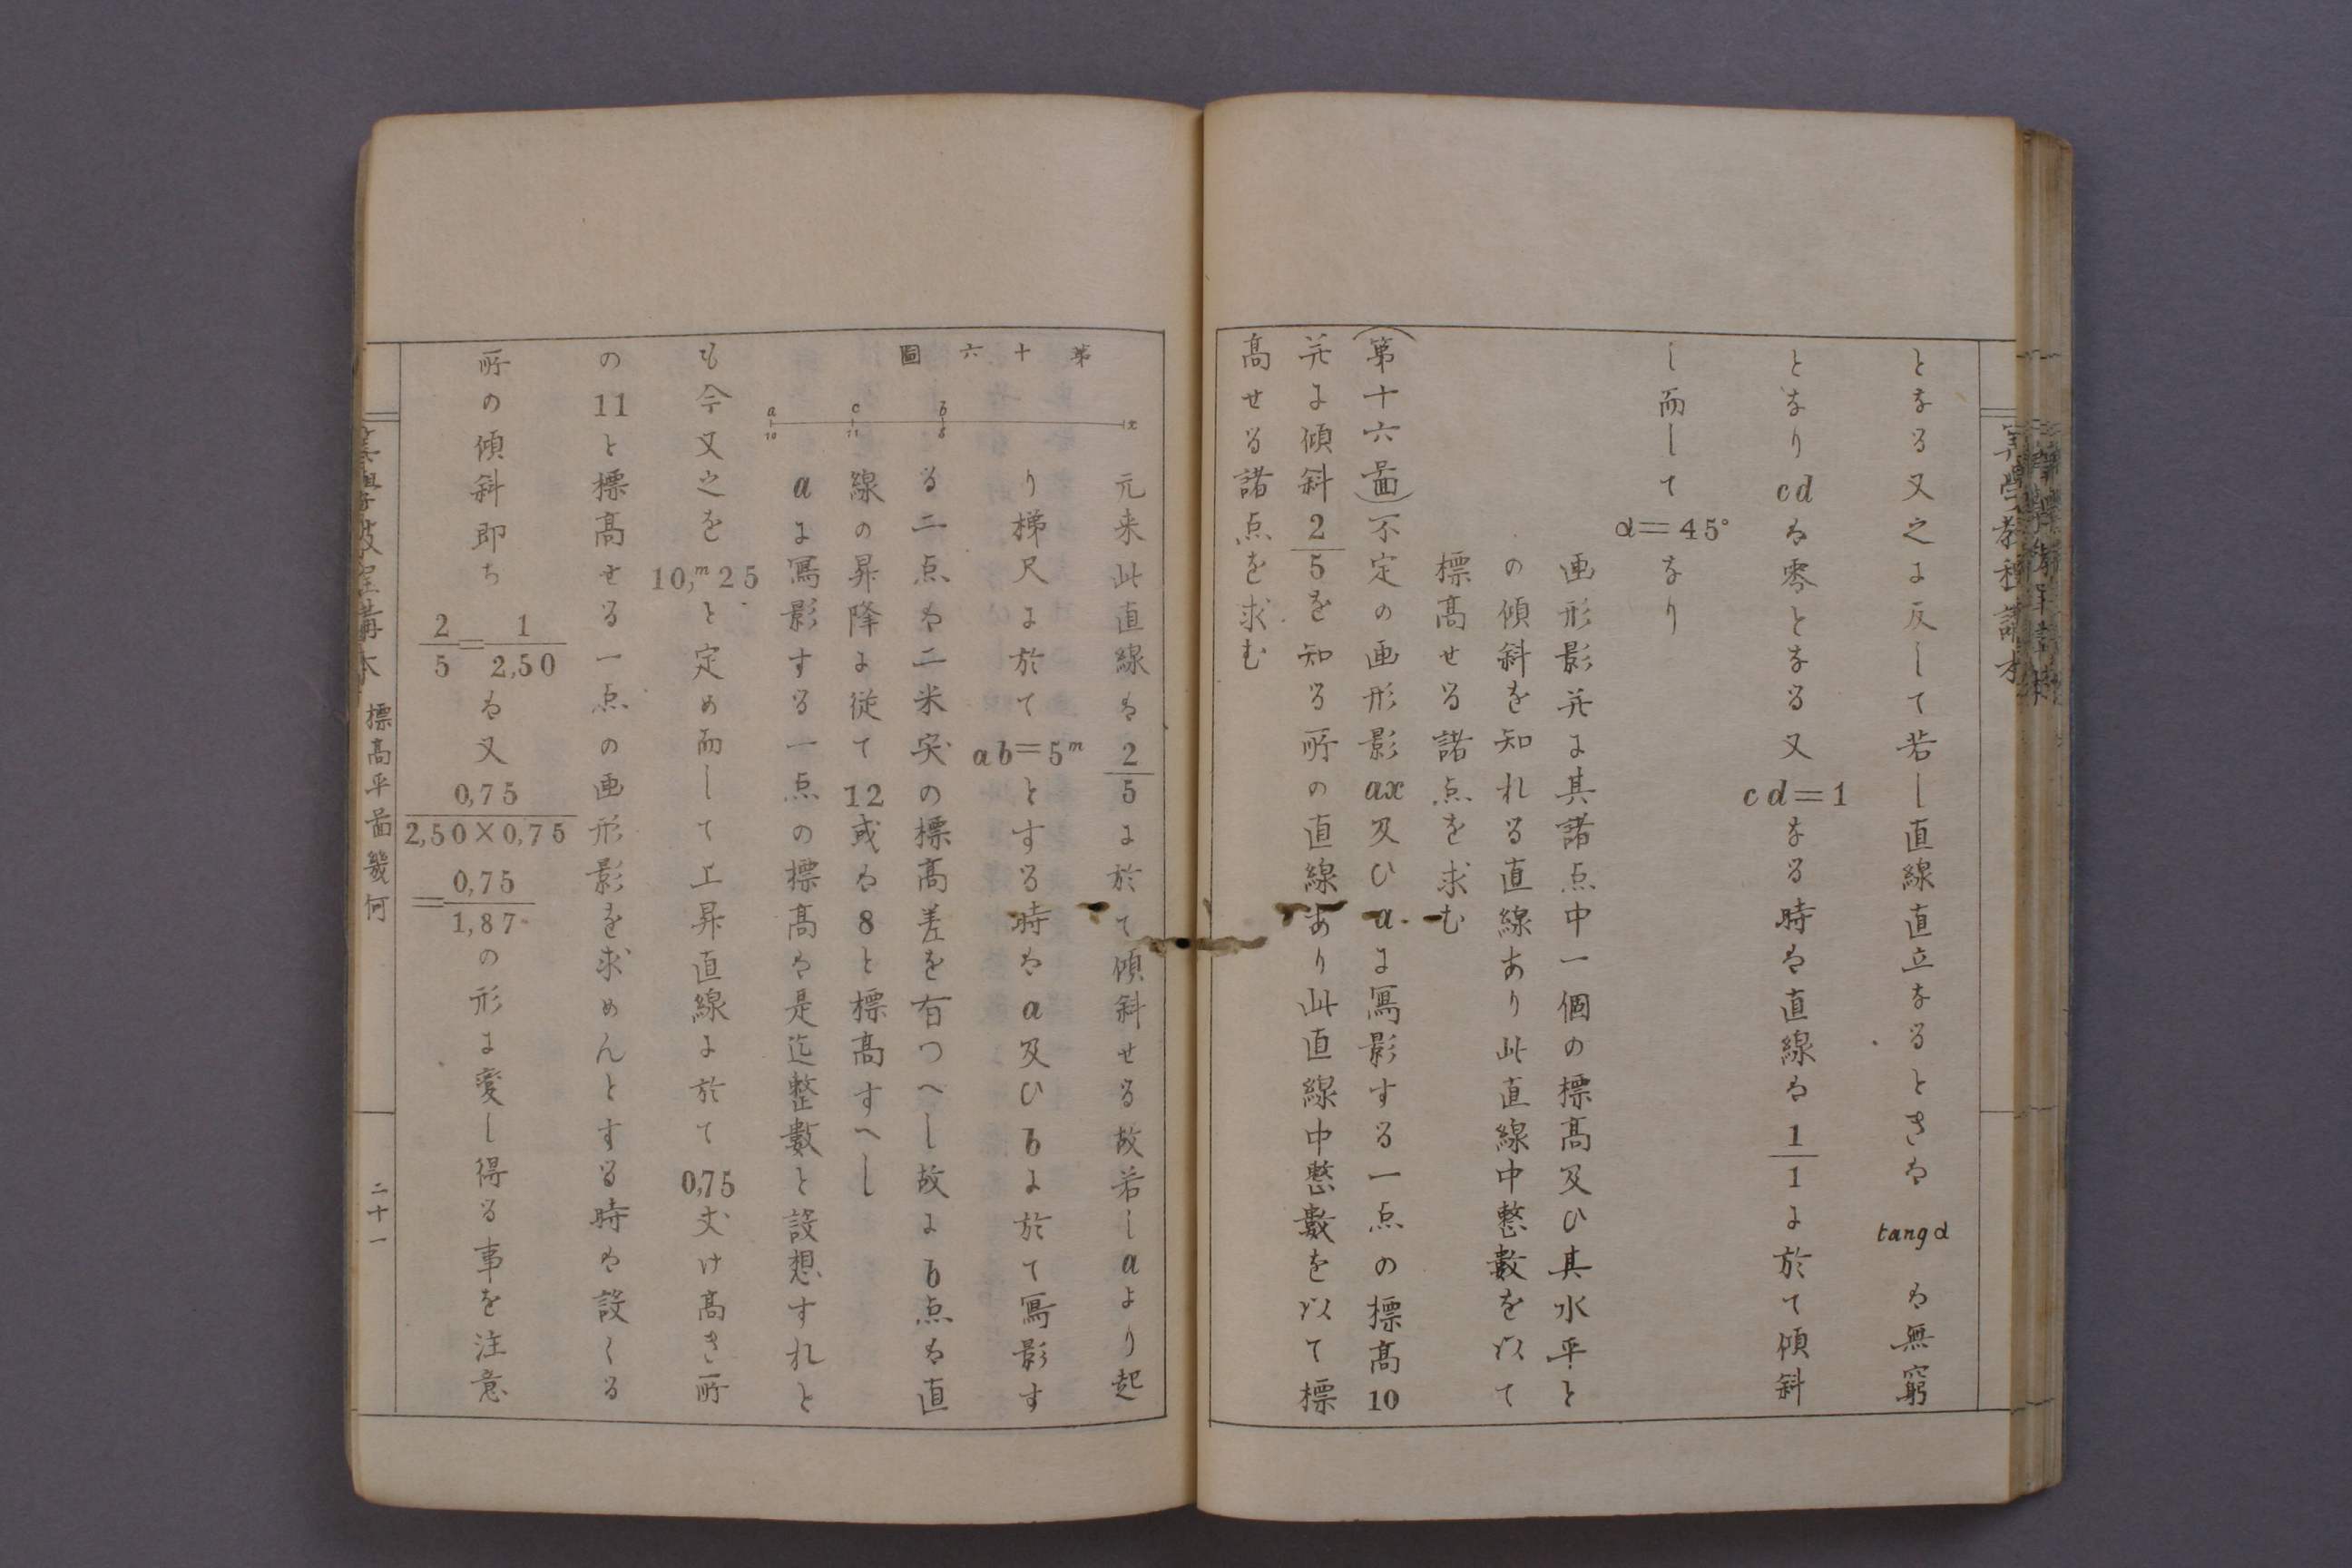 となる又之よ反して若し直線直立なるときは tang α は無窮
となり cd は零となる又 cd=1 なる時は直線は 1/1 よ於て傾斜
し而して α=45° なり
画形影并よ其諸点中一個の標高及ひ其水平と
の傾斜を知れる直線あり此直線中整數を以て
標高せる諸点を求む
(第十六啚)不定の画形影 ax 及ひ a よ寫影する一点の標高 10
并よ傾斜 2/5 を知る所の直線あり此直線中整數を以て標
高せる諸点を求む
第十六圖
a c b x
10 11 8
元来此直線は 2/5 よ於て傾斜せる故若し a より起
り梯尺よ於て ab=5m とする時は a 及ひ b よ於て寫影す
る二点は二米突の標高差を有つへし故よ b 点は直
線の昇降よ従て 12 或は 8 と標高すへし
a よ寫影する一点の標高は是迄整數と設想すれと
も今又之を 10,m25 と定め而して上昇直線よ於て 0,75 丈け高き所
の 11 と標高せる一点の画形影を求めんとする時は設くる
所の傾斜即ち 2/5=1/2,50 は又 0,75/2,50×0,75=0,75/1,87 の形よ変し得る事を注意
標高平啚幾何
二十一